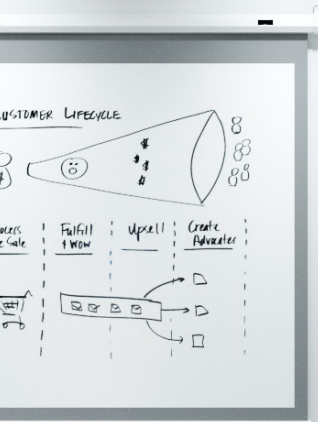 USTOMER LIFECYCLE
$
$ $
$
Fulfill
+ WOW
Upsell
Create
Advocates
e Sale